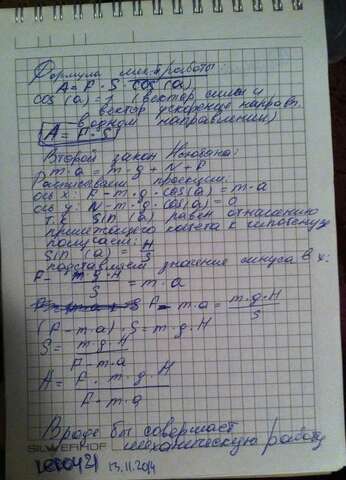 Формула мех-й работы:
A = F · S · cos(a)
cos(a) = 1 (вектор силы и
вектор ускорение направл.
в одном направлении)
A = F · S
Второй закон Ньютона:
m · a = m · g + N + F
Расписываем проекции:
ось x: F - m · g · cos(a) = m · a
ось y: N - m · g · cos(a) = 0
т.к. sin(a) равен отношению
прилежащего катета к гипотенузе
получаем:
sin(a) = H/S
подставляем значение синуса в x:
F - m · g · H / S = m · a
F - m · a = m · g · H / S
(F - m · a) · S = m · g · H
S = m · g · H / F - m · a
A = F · m · g · H / F - m · a
Вроде бы совершает
механическую работу
SILWERHOF
13.11.2014